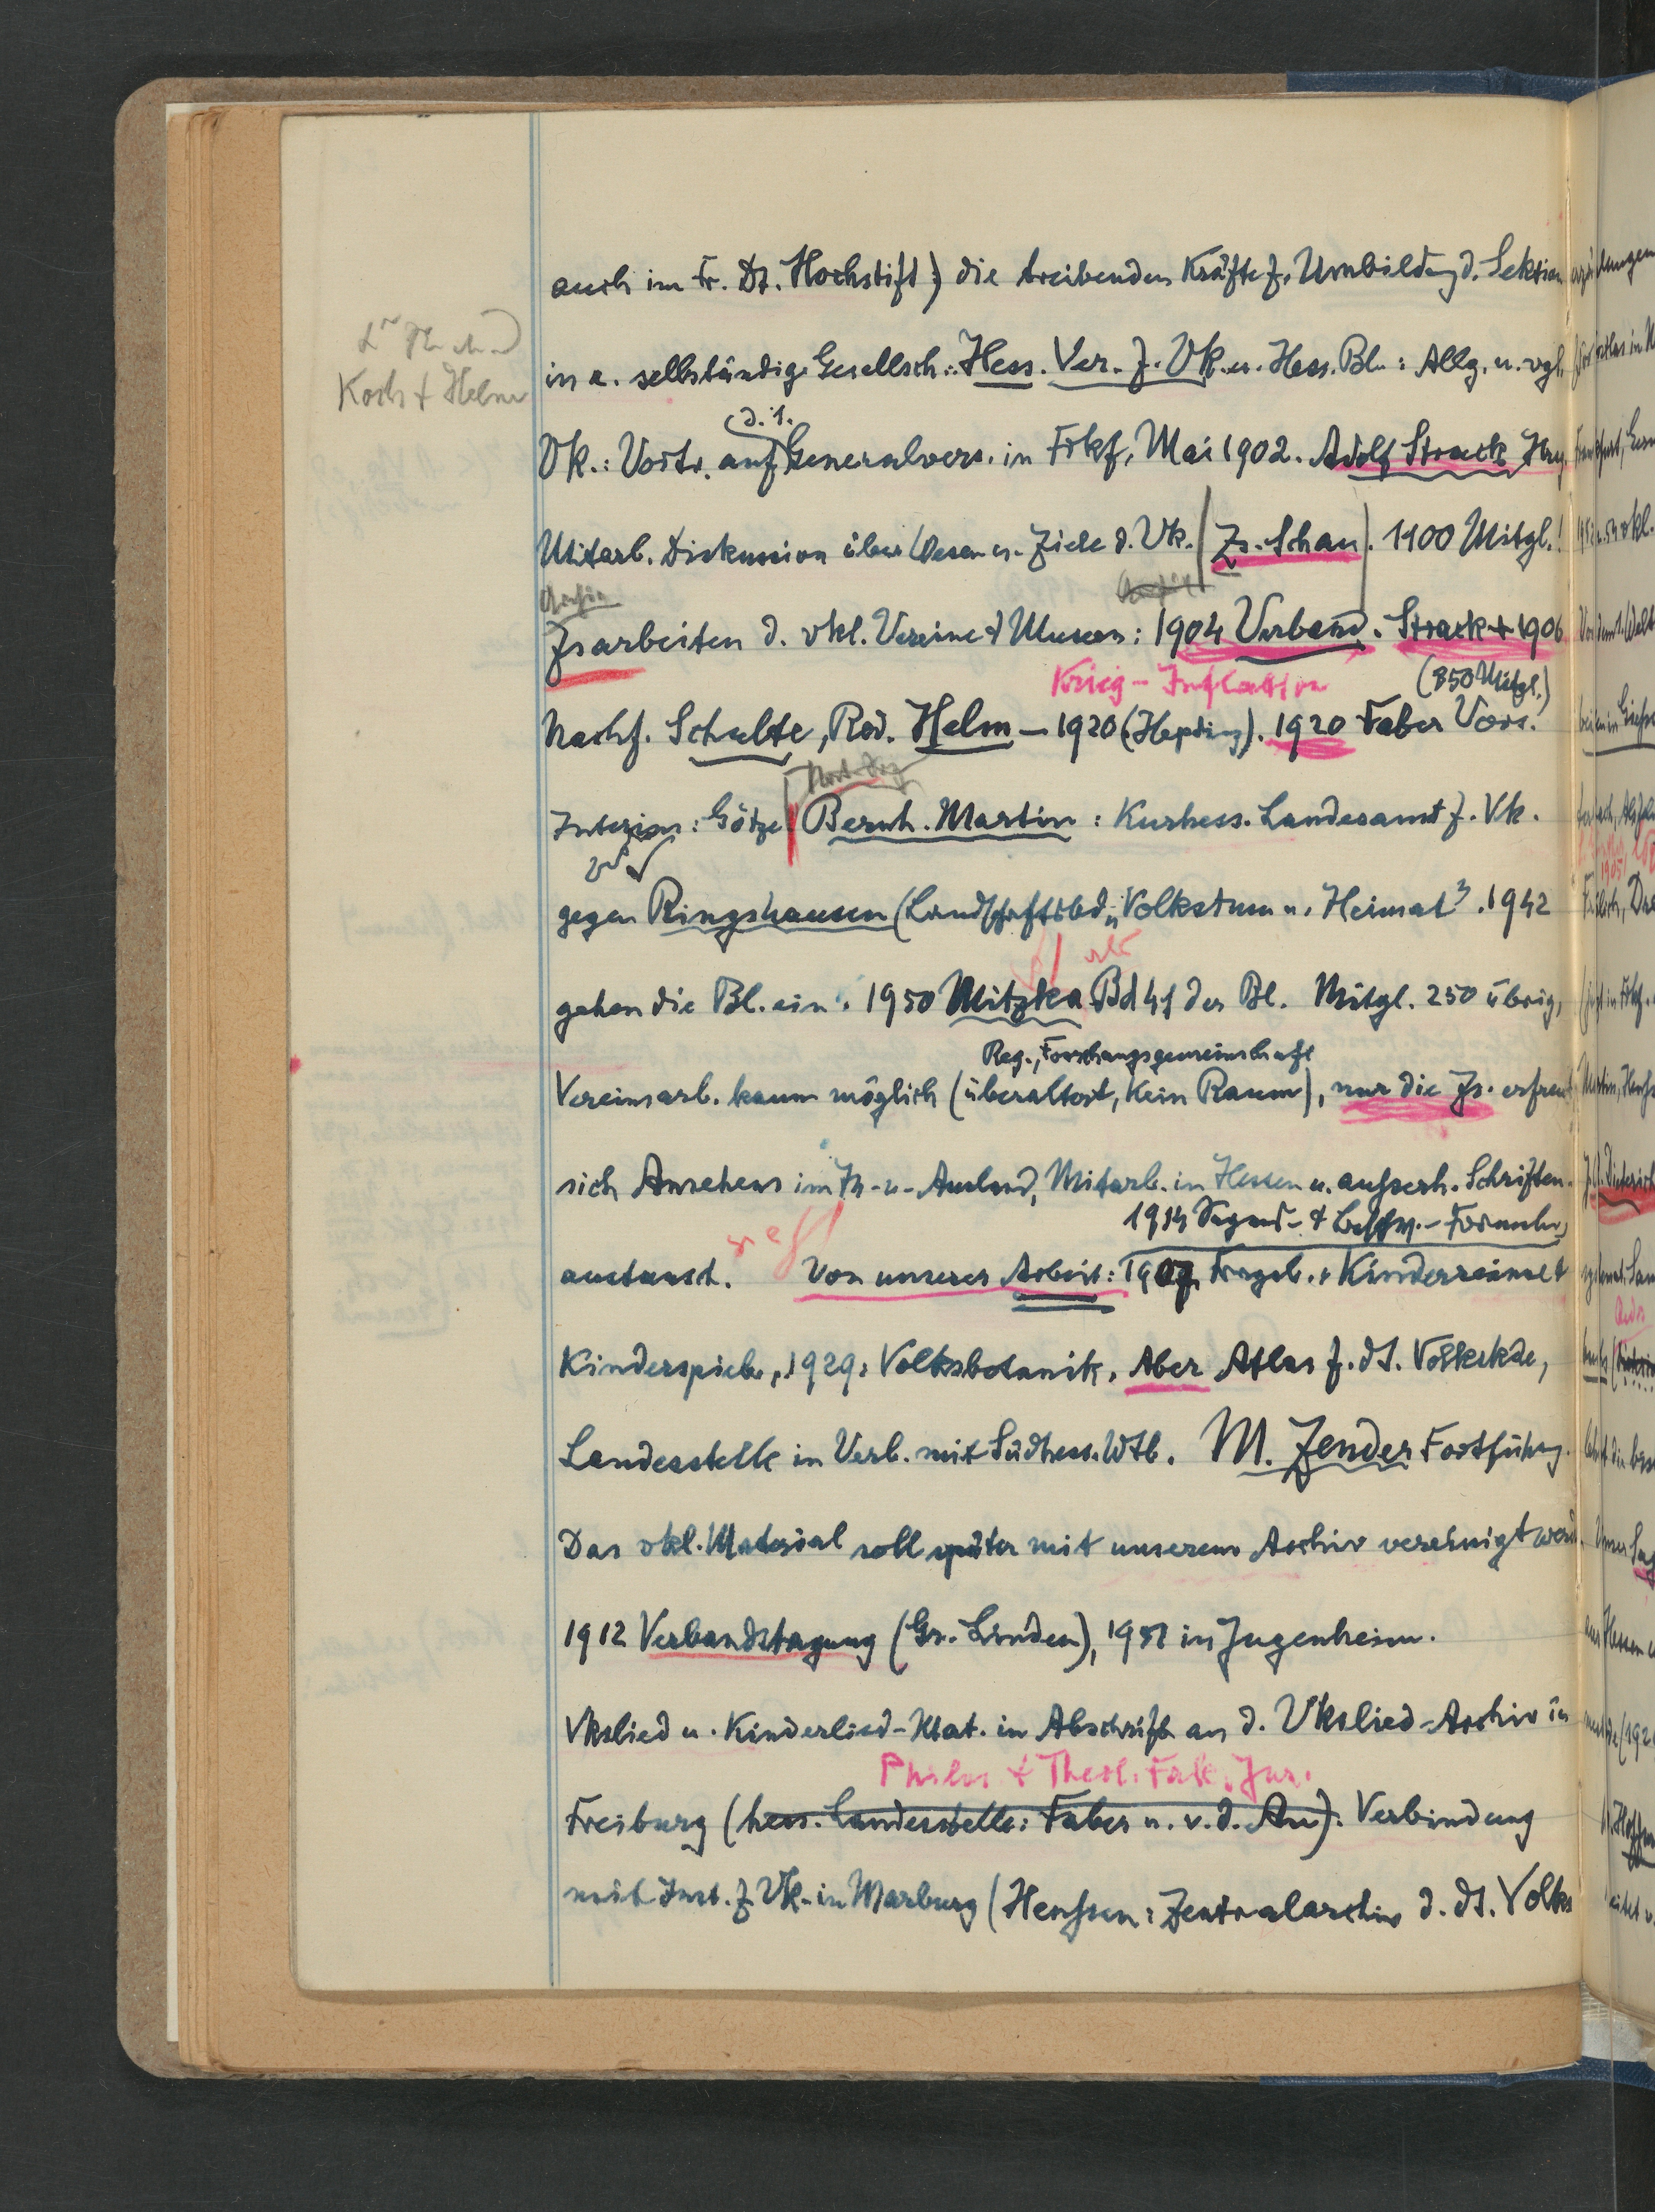 auch im Fr. Dt. Hochstift) die treibenden Kräfte f. Umbildung d. Sektion
Koch + Helm
in e. selbständige Gesellsch.: Hess. Ver. f. Vk. u. Hess. Bl.: Allg. u. vgl.
(d. 1.
Vk.: Vortr. auf Generalvers. in Frkf, Mai 1902. Adolf Strack Hrsg.
Mitarb. Diskussion über Wesen u. Ziele d. Vk. (Zs.-Schau). 1100 Mitgl.!
Zsarbeiten d. vkl. Vereine + Museen: 1904 Verband. Strack + 1906
Krieg - Inflation
(850 Mitgl.)
Nachf. Schulte, Red. Helm – 1920 (Hepding). 1920 Faber Vors.
Interim: Götze. Bernh. Martin: Kurhess. Landesamt f. Vk.
gegen Ringshausen (Landschaftsbd. „Volkstum u. Heimat". 1942
gehen die Bl. ein. 1950 Mitzka Bd 41 der Bl. Mitgl. 250 übrig,
Reg., Forschungsgemeinschaft
Vereinsarb. kaum möglich (überaltert, kein Raum), nur die Zs. erfreut
sich Ansehens im In- u. Ausland, Mitarb. in Hessen u. ausserh. Schriften-
1914 Segens- + Beschw.-Formeln,
austausch. Von unserer Arbeit: 1907 Frageb. + Kinderreime +
Kinderspiele, 1929: Volksbotanik. Aber Atlas f. dt. Volkskde,
Landesstelle in Verb. mit Südhess. Wtb. M. Zender Fortführg.
Das vkl. Material soll später mit unserem Archiv vereinigt werd.
1912 Verbandstagung (Gr. Linden), 1951 in Jugenheim.
Vkslied u. Kinderlied-Mat. in Abschrift an d. Vkslied-Archiv in
Philos + Theol. Fak. Jur.
Freiburg (hess. Landesstelle: Faber u. v. d. Au). Verbindung
mit Inst. f. Vk. in Marburg (Henssen: Zentralarchiv d. dt. Volks